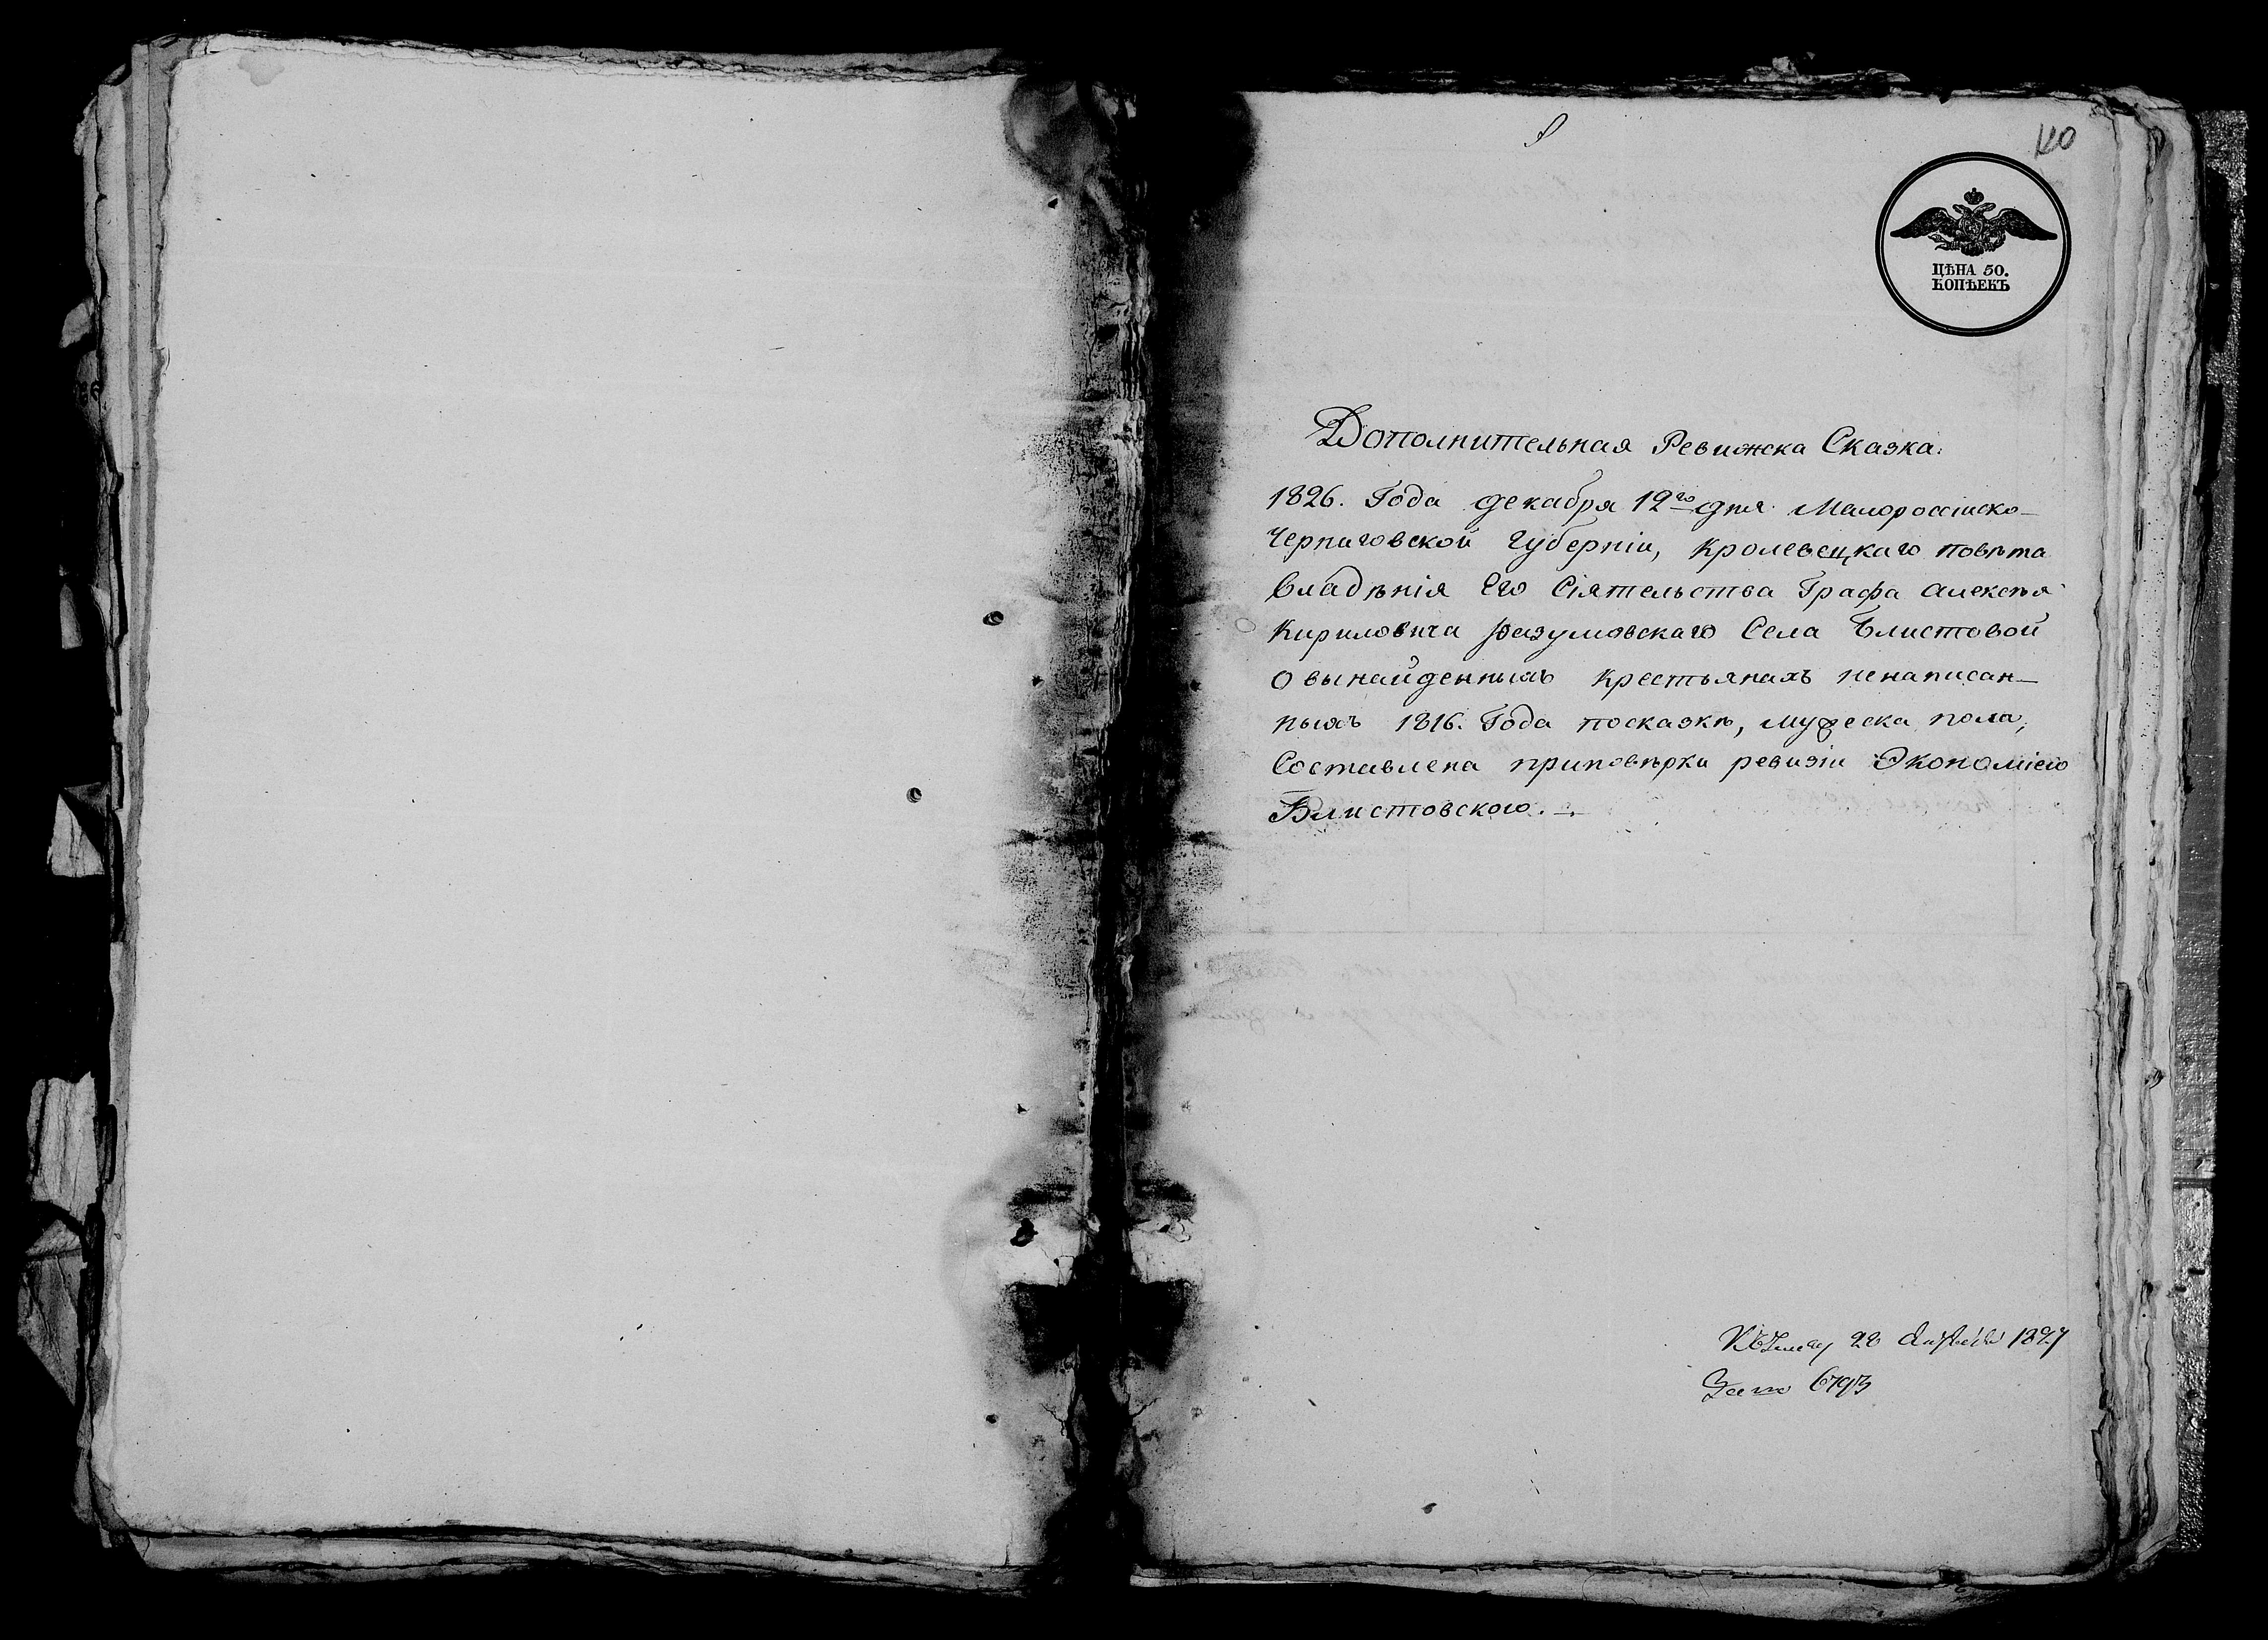 140
ЦѢНА 50.
КОПѢЕКЪ
Дополнительная Ревижска Сказка.
1826. Года декабря 12го дня Малороссійско-
Черниговской Губерніи, Кролевецкаго повѣта
Владѣнія Его Сіятельства Графа Алексѣя
Кириловича Разумовскаго Села Блистовой
О вынайденныхъ Крестьянахъ ненаписан-
ныхъ 1816. Года посказкѣ, мужеска пола,
Составлена приповѣрки ревизіи Экономіею
Блистовскою.
28 Апреля 1827
6793